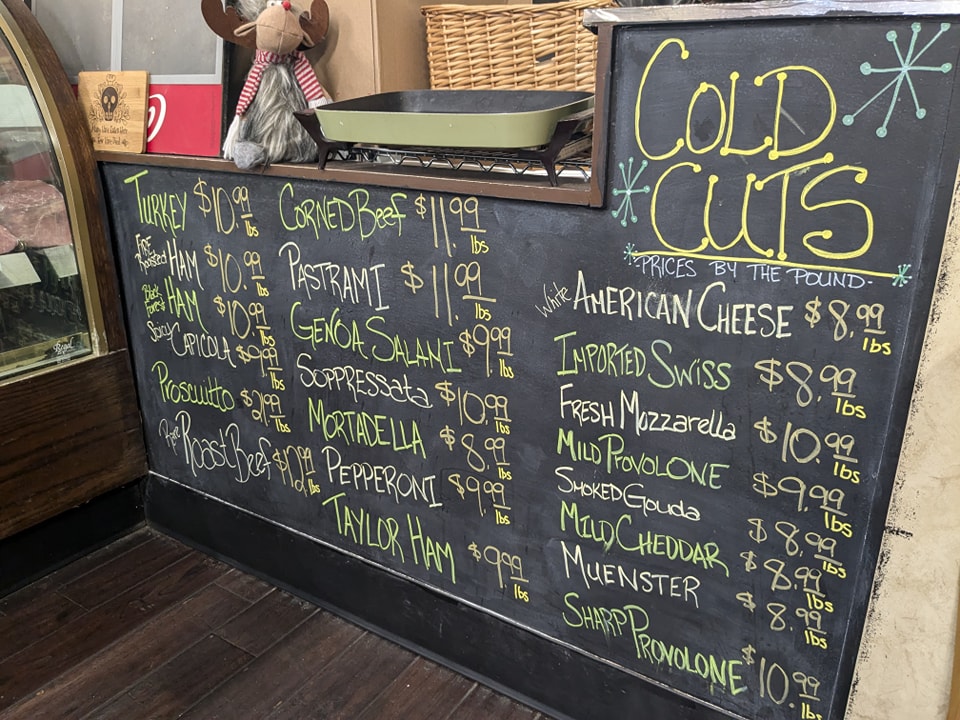 COLD
CUTS
-PRICES BY THE POUND-
TURKEY $10.99 lbs
FIRE Roasted HAM $10.99 lbs
Black Forest HAM $10.99 lbs
SPICY CAPICOLA $9.99 lbs
Proscuitto $21.99 lbs
Rare Roast Beef $12.99 lbs
Corned Beef $11.99 lbs
PASTRAMI $11.99 lbs
GENOA SALAMI $9.99 lbs
SOPPRESSATA $10.99 lbs
MORTADELLA $8.99 lbs
PEPPERONI $9.99 lbs
TAYLOR HAM $9.99 lbs
White AMERICAN CHEESE $8.99 lbs
IMPORTED SWISS $8.99 lbs
FRESH Mozzarella $10.99 lbs
MILD PROVOLONE $9.99 lbs
SMOKED GOUDA $8.99 lbs
MILD CHEDDAR $8.99 lbs
MUENSTER $8.99 lbs
SHARP PROVOLONE $10.99 lbs